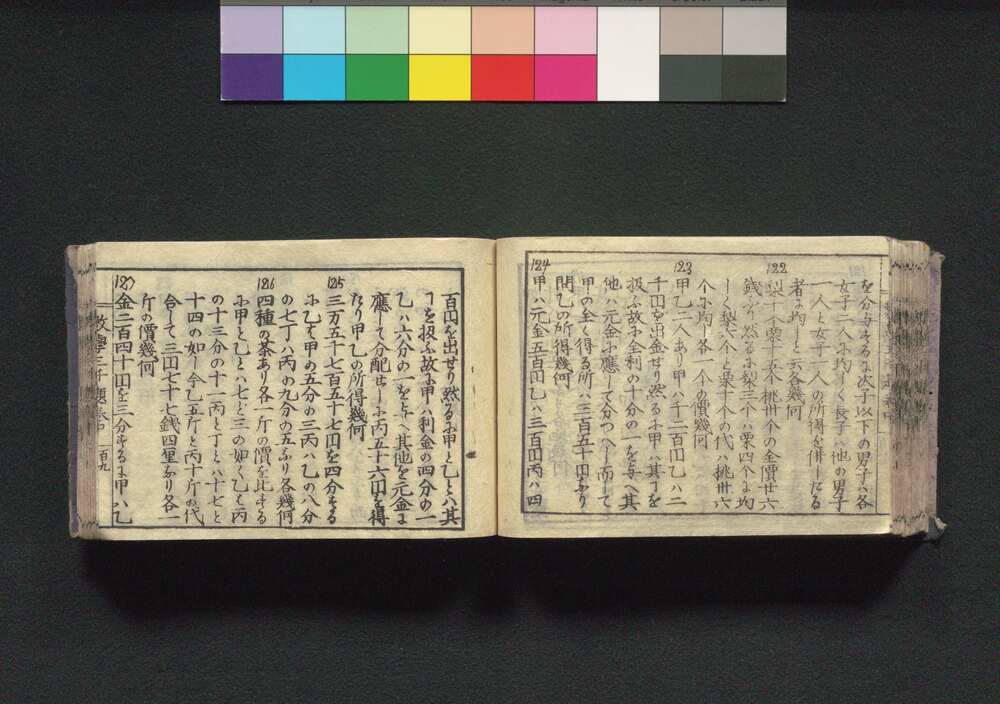 を分與するに次子以下の男子ハ各
女子二人に均しく長子ハ他の男子
一人と女子一人の所得を併したる
者に均しと云各幾何
122
梨十个栗十五个桃卅个の全價廿六
錢なり然るに梨三个ハ栗四个に均
しく梨六个と栗十个の代ハ桃卅六
个に均し各一个の價幾何
123
甲乙二人あり甲ハ千二百円乙ハ二
千円を出金せり然るに甲ハ其丁を
扱ふ故に全利の十分の一を与へ其
他ハ元金に應して分つへし而して
甲の全く得る所ハ三百五十円なり
問乙の所得幾何
124
甲ハ元金五百円乙ハ三百円丙ハ四
百円を出せり然るに甲と乙とハ其
丁を扱ふ故に甲ハ利金の四分の一
乙ハ六分の一を与へ其他を元金に
應して分配せしに丙五十六円を得
たり甲乙の所得幾何
125
三万五千七百五十七円を四分する
に乙ハ甲の五分の三丙ハ乙の八分
の七丁ハ丙の九分の五なり各幾何
126
四種の茶あり各一斤の價を比する
に甲と乙とハ七と三の如く乙と丙
の十三分の十一丙と丁とハ十七と
十四の如し今乙五斤と丙十斤の代
合して三円七十七錢四厘なり各一
斤の價幾何
127
金二百四十円を三分するに甲ハ乙
数學三千題卷中
百九